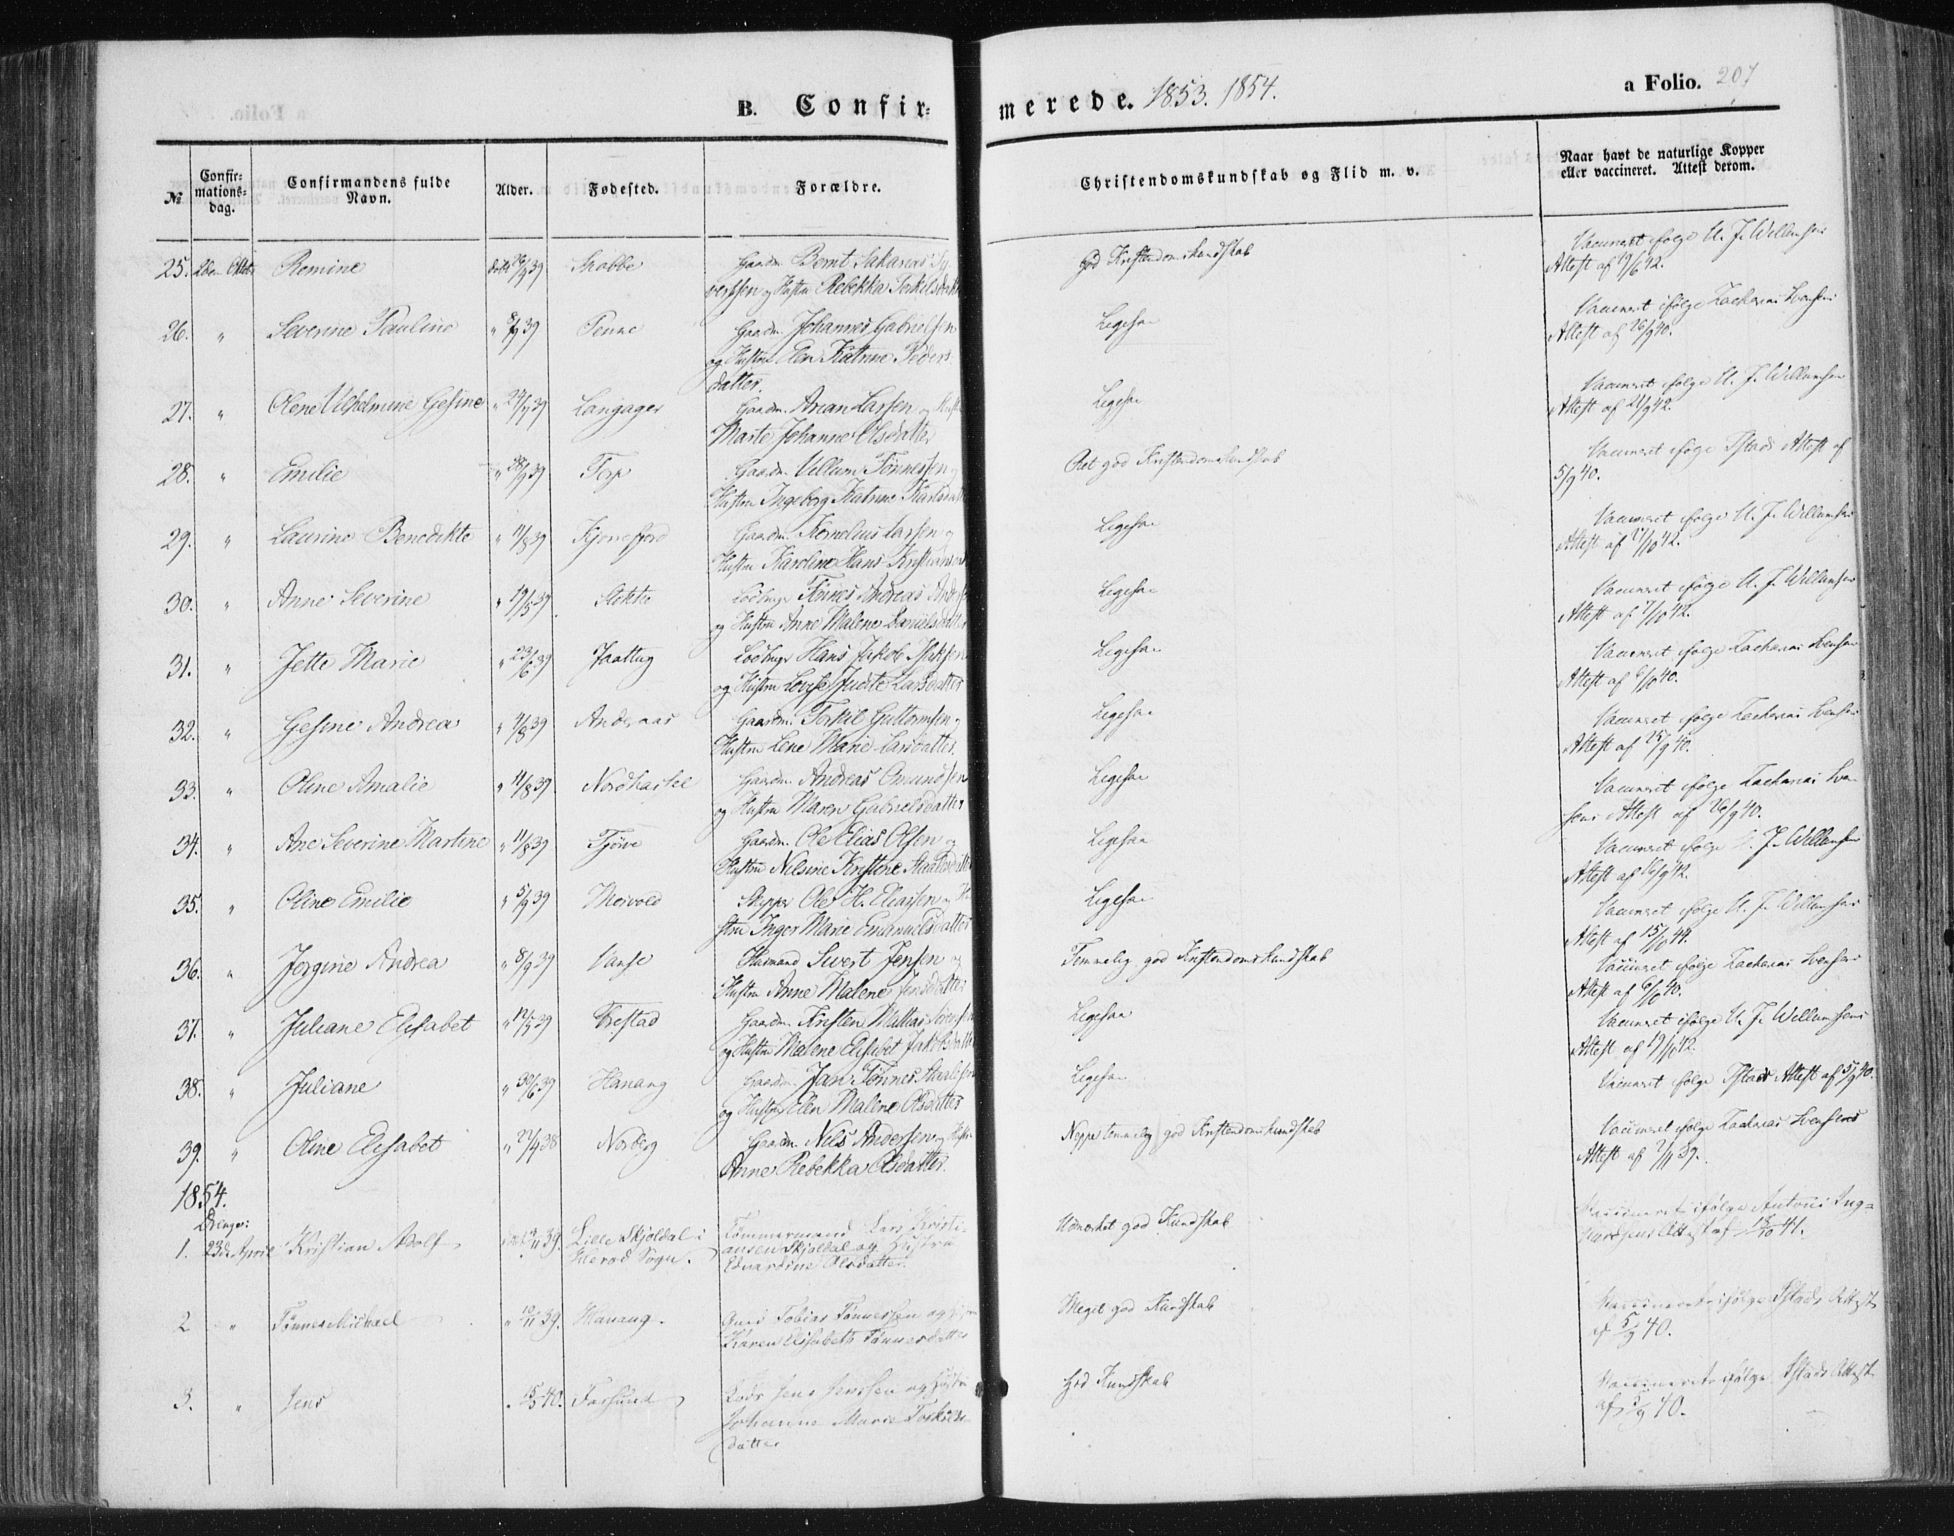 B. Confir-
merede. 1853. 1854.
a Folio. 207
No
Confir-
mations-
dag.
Confirmandens fulde
Navn.
Alder.
Fødested.
Forældre.
Christendomskundskab og Flid m. v.
Naar havt de naturlige Kopper
eller vaccineret. Attest derom.
25. 2den Octbr Romine 39 Skobbe Gaardm. Bernt Sakarias Sy-
vertsen og Hustru Rebekka Terkelsdatter
God Kristendomskundskab
Vaccineret ifølge U. J. Willumsens
Attest af 19/6 42.
26. " Severine Pauline " 39 Penne Gaardm. Johannes Gabrielsen
og Hustru Elen Katrine Peders-
datter.
Ligesaa
Vaccineret ifølge Zacharias Svensens
Attest af 26/9 40.
27. " Olene Vilhelmine Gesine " 24/7 39 Langager Gaardm. Arian Larsen og Hustru
Marte Johanne Olsdatter
Ligesaa
Vaccineret ifølge U. J. Willumsens
Attest af 21/9 42.
28. " Emilie " 28/9 39 Torp Gaardm. Villum Tønnessen og
Hustru Ingeborg Katrine Karlsdatter
Ret god Kristendomskundskab
Vaccineret ifølge Tstads Attest af
5/9 40.
29. " Laurine Benedikte " 11/8 39 Kjørrefjord Gaardm. Kornelius Larsen og
Hustru Karoline Hans Kristiansdatter
Ligesaa
Vaccineret ifølge U. J. Willumsens
Attest af 17/10 42.
30. " Anne Severine " 19/5 39 Stokke Losbugr Tønnes Andreas Andersen
og Hustru Anne Malene Danielsdatter
Ligesaa
Vaccineret ifølge U. J. Willumsens
Attest af 7/10 42.
31. " Jette Marie " 23/6 39 Jaattog Losbugr Hans Jakob Isaksen
og Hustru Lovise Judite Larsdatter
Ligesaa
Vaccineret ifølge Zacharias Svensens
Attest af 6/10 40.
32. " Gesine Andrea " 4/8 39 Andraas Gaardm. Torkil Guttormsen og
Hustru Lene Marie Larsdatter.
Ligesaa
Vaccineret ifølge Zacharias Svensens
Attest af 25/9 40.
33. " Oline Amalie " 11/8 39 Nordhassel Gaardm. Andreas Omundsen
og Hustru Maren Gabrielsdatter
Ligesaa
Vaccineret ifølge Zacharias Sven-
sens Attest af 26/9 40.
34. " Ane Severine Martine " 11/8 39 Tjørve Gaardm. Ole Elias Olsen og
Hustru Nilsine Kristine Staalesdatter
Ligesaa
Vaccineret ifølge U. J. Willumsens
Attest af 16/9 42.
35. " Oline Emilie " 5/9 39 Meivold Skipper Ole H. Eliassen og Hu-
stru Inger Marie Emanuelsdatter
Ligesaa
Vaccineret ifølge U. J. Willumsens
Attest af 15/10 44.
36. " Jørgine Andrea " 8/9 39 Vanse Husmand Sivert Jensen og
Hustru Anne Malene Jensdatter
Temmelig god Kristendomskundskab
Vaccineret ifølge Zacharias Svensens
Attest af 6/10 40.
37. " Juliane Elisabet " 12/5 39 Frestad Gaardm. Kristen Mattias
og Hustru Malene Elisabet Jakobsdatter
Ligesaa
Vaccineret ifølge U. J. Willumsens
Attest af 19/10 42.
38. " Juliane " 30/6 39 Hanang Gaardm. Jan Tønnes Staalesen
og Hustru Elen Malene Olsdatter
Ligesaa
Vaccineret ifølge Tstads Attest af 5/9 40.
39. " Oline Elisabet " 38 Norberg Gaardm. Nils Andersen og Hustru
Anne Rebekka Olsdatter.
Neppe temmelig god Kristendomskundskab
Vaccineret ifølge Zacharias Svensens
Attest af 39.
1854.
Drenge:
1. 23de April Kristian Adolf 39. Lille Skjoldal i
Herad Sogn. Tømmermand Lars Kristi-
ansen Skjoldal og Hustru
Edvardine Olsdatter.
Udmærket god Kundskab
Vaccineret ifølge Antoni Ing-
Attest af 15/10 41.
2 " Tønnes Michael " 10/11 39. Hanang. Tobias Tønnessen og Hustru
Karen Elisabeth Tønnesdatter
Meget god Kundskab
Vaccineret ifølge Tstads Attest
af 5/9 40.
3. " Jens 40. Farsund Jens Jensen og Hustru
Johanne Marie
datter
God Kundskab
Vaccineret ifølge Tstads Attest
af 5/9 40.